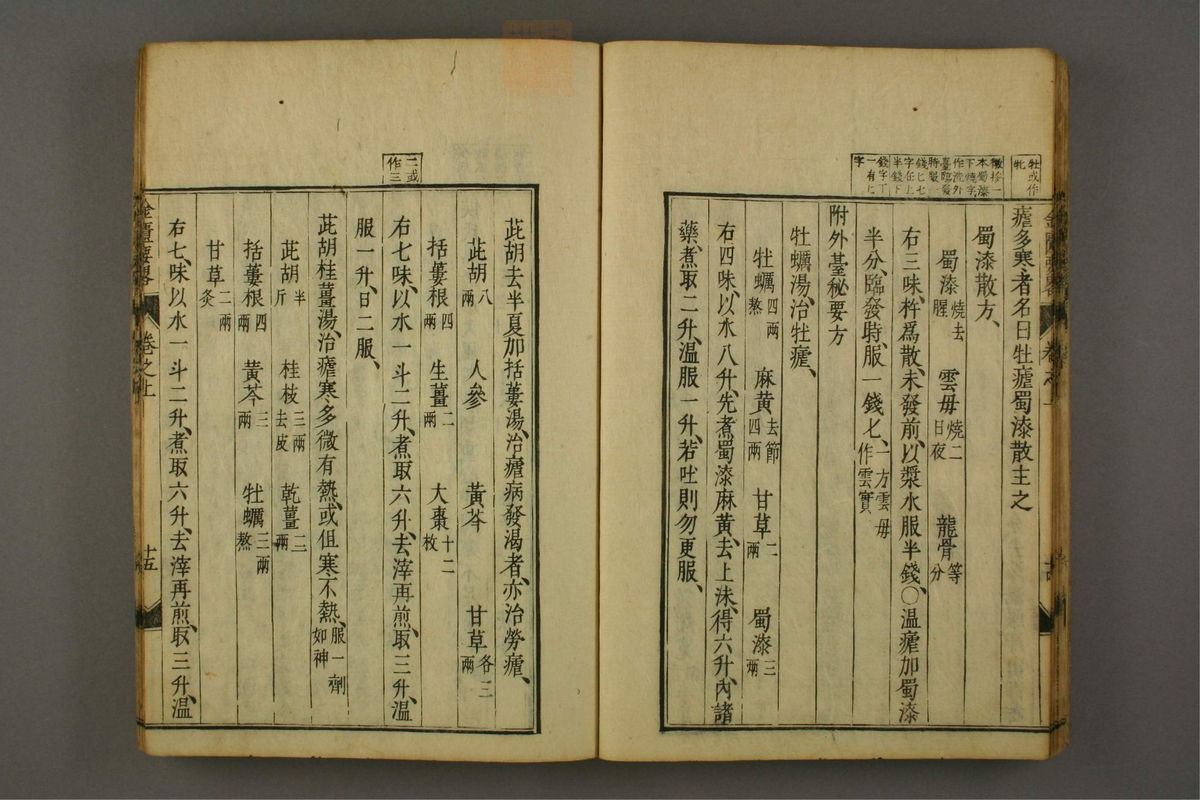 牡或作
牝
瘧多寒者名曰牡瘧蜀漆散主之
蜀漆散方、
蜀漆燒去腥　雲母燒二日夜　龍骨等分
右三味、杵爲散、未發前、以漿水服半錢、〇溫瘧加蜀漆
半分、臨發時、服一錢匕、一方雲母作雲實
附外臺秘要方
牡蠣湯、治牡瘧、
牡蠣四兩熬　麻黃去節四兩　甘草二兩　蜀漆三兩
右四味、以水八升、先煮蜀漆麻黃、去上沫、得六升、內諸
藥、煮取二升、溫服一升、若吐則勿更服、
二或
作三
茈胡去半夏加括蔞湯、治瘧病發渴者、亦治勞瘧、
茈胡八兩　人參　黃芩　甘草各三兩
括蔞根四兩　生薑二兩　大棗十二枚
右七味、以水一斗二升、煮取六升、去滓再煎、取三升、溫
服一升、日二服、
茈胡桂薑湯、治瘧寒多微有熱、或但寒不熱、服一劑如神
茈胡半斤　桂枝三兩去皮　乾薑二兩
括蔞根四兩　黃芩三兩　牡蠣三兩熬
甘草二兩炙
右七味、以水一斗二升、煮取六升、去滓再煎、取三升、溫
金匱要畧
卷之上
十五